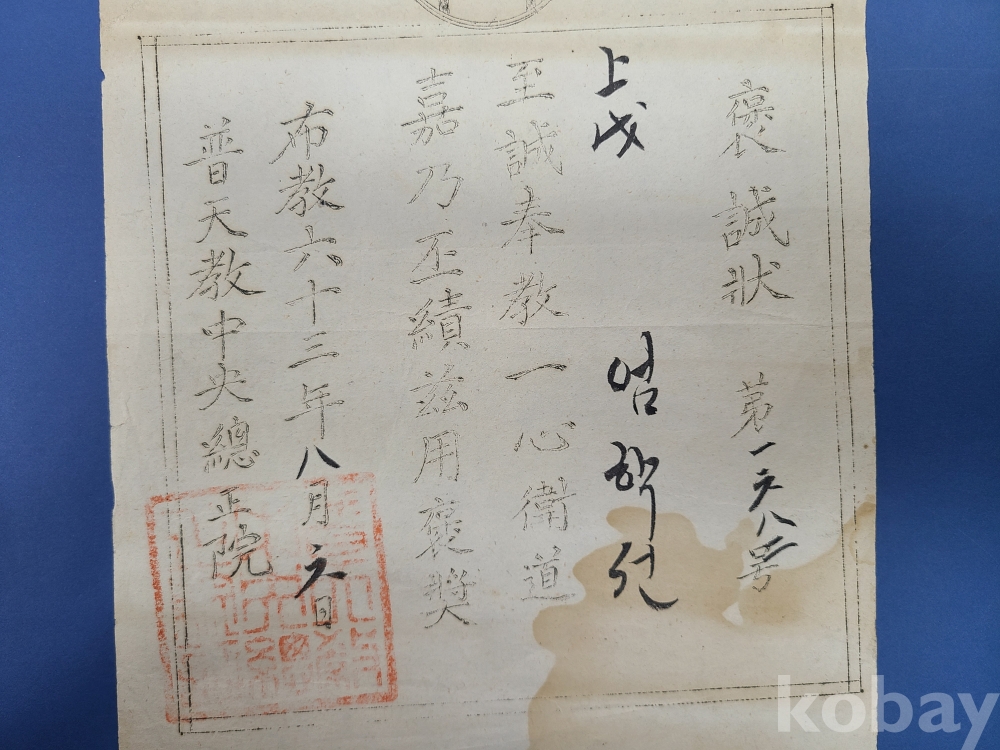 褒誠狀
第一六八号
上戊 염학선
至誠奉教一心衛道
嘉乃丕績茲用褒奬
布教六十三年八月六日
普天教中央總正院
kobay